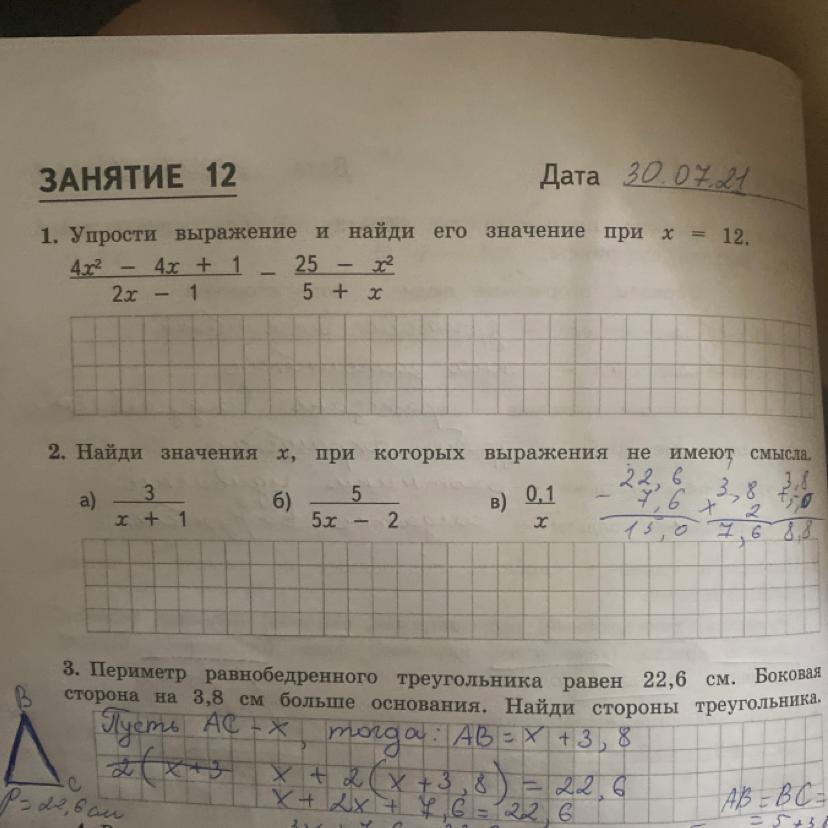 ЗАНЯТИЕ 12
Дата 30.07.21
1. Упрости выражение и найди его значение при x = 12.
4x² − 4x + 1 − 25 − x²
2x − 1 5 + x
2. Найди значения x, при которых выражения не имеют смысла.
а) 3 б) 5 в) 0,1
x + 1 5x − 2 x
− 22,6
7,6
15,0
× 3,8
2
7,6
3,8
8,8
3. Периметр равнобедренного треугольника равен 22,6 см. Боковая
сторона на 3,8 см больше основания. Найди стороны треугольника.
B
C
P = 22,6 см
Пусть AC - x, тогда: AB = x + 3,8
2(x+3 x + 2(x+3,8) = 22,6
x + 2x + 7,6 = 22,6
AB = BC =